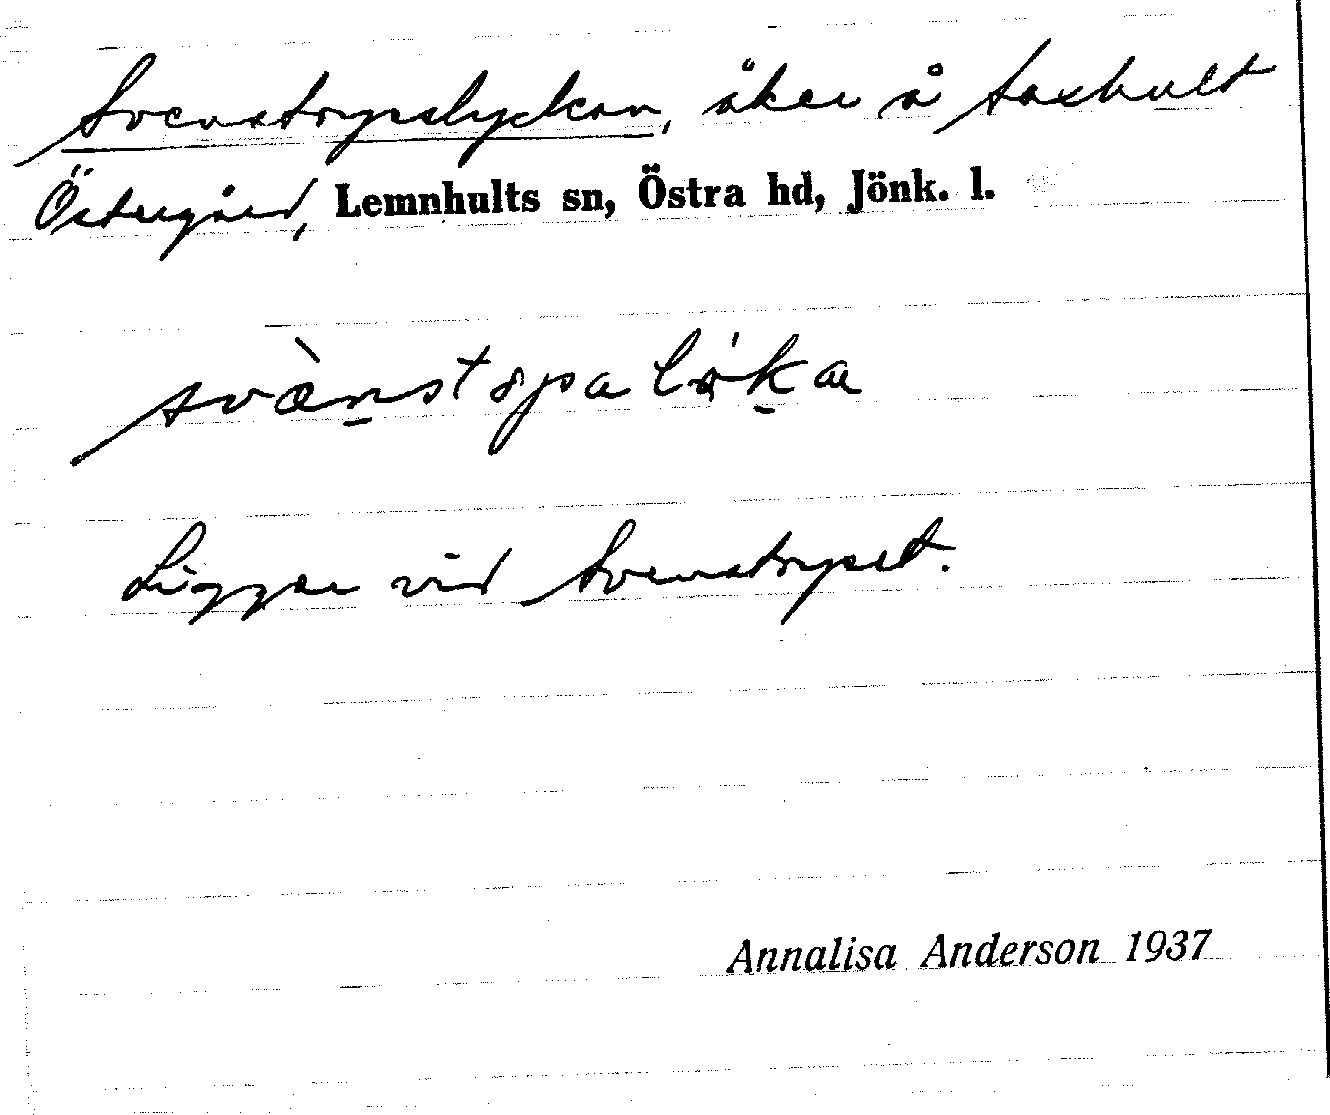 Svenstorpslyckan, åker å Saxhult
Östergård, Lemnhults sn, Östra hd, Jönk. l.
Ligger vid
Annalisa Anderson 1937